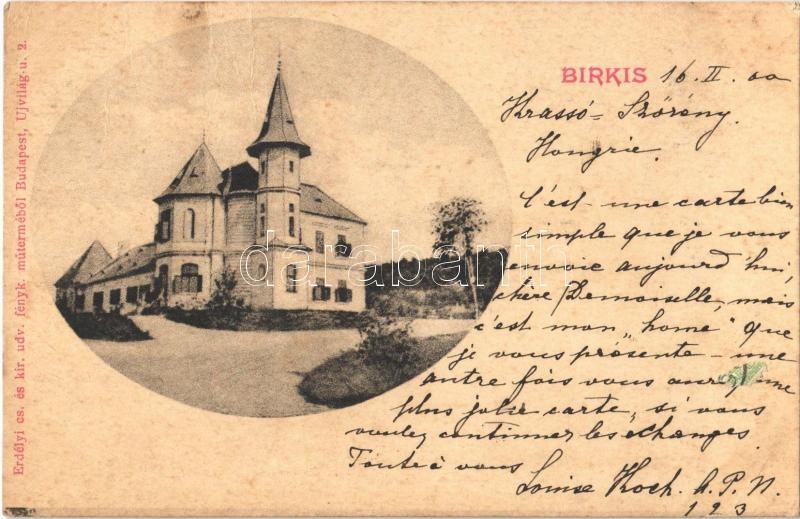 Erdélyi cs. és kir. udv. fényk. műterméből Budapest, Ujvilág-u. 2.
BIRKIS 16. II. 00
Krassó-Szörény.
Hongrie.
C'est une carte bien
simple que je vous
envoie aujourd'hui,
chère Demoiselle, mais
c'est mon „home" que
je vous présente – une
autre fois vous aurez une
plus jolie carte, si vous
voulez continuer les échanges.
Toute à vous
Louise Koch. A.P.N.
123
darabanth